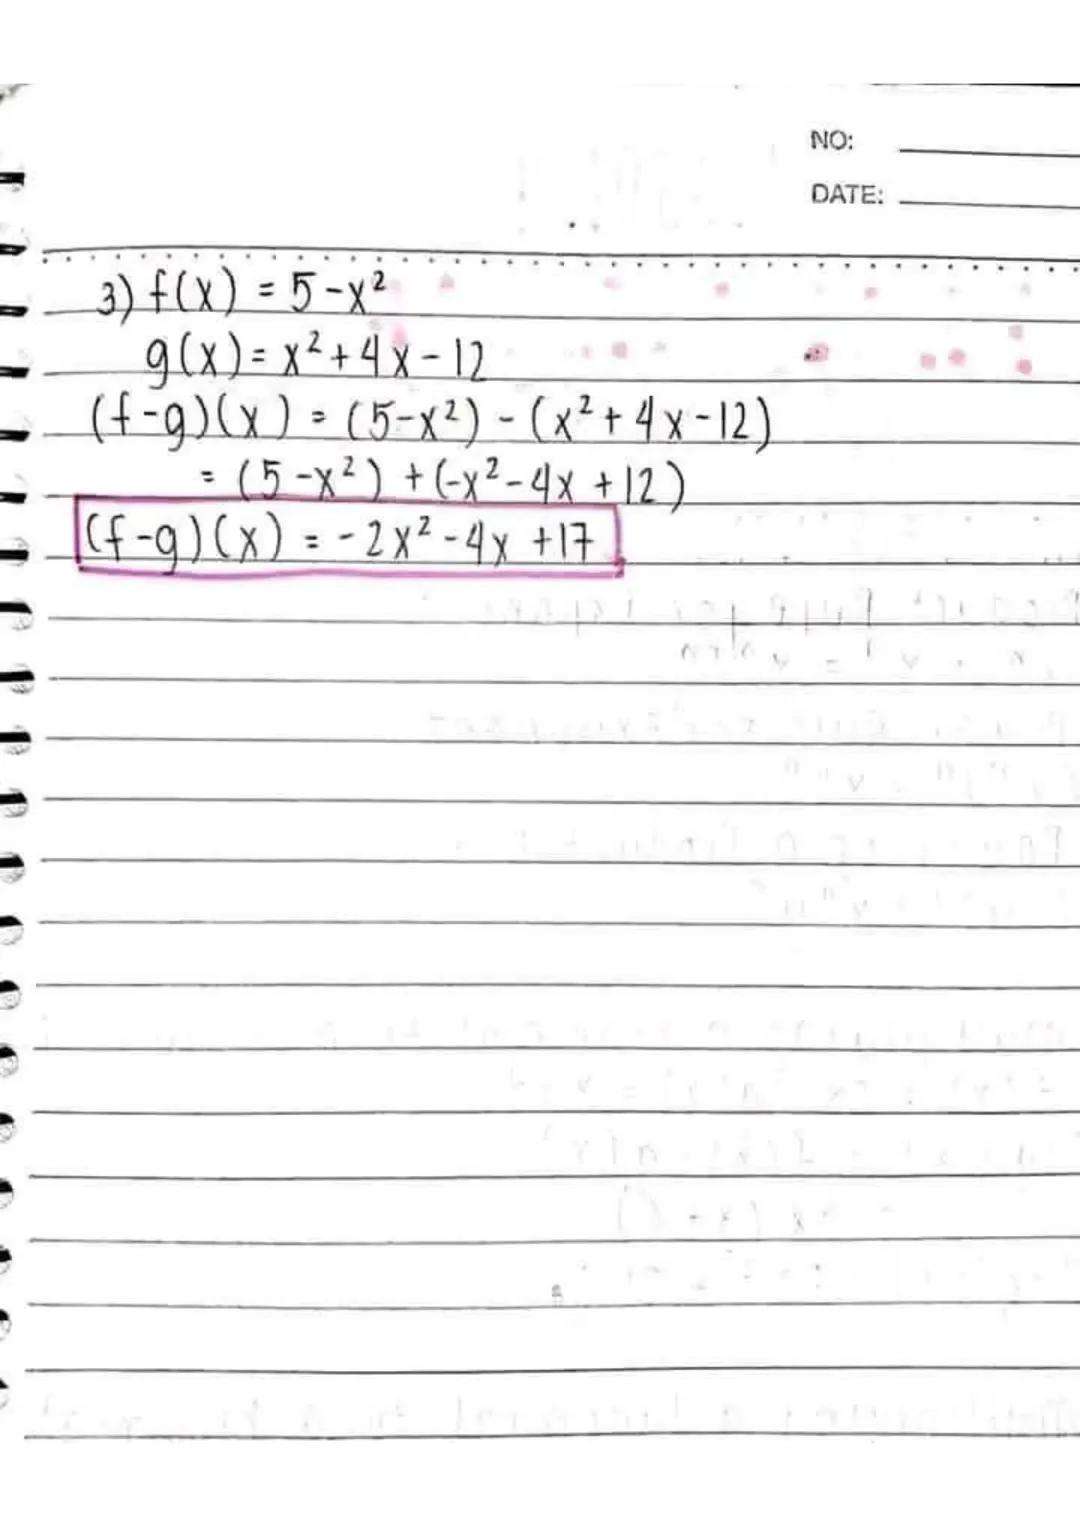 NO:
DATE:
3) f(x) = 5-x²
g(x) = x² + 4x - 12
(f-g)(x) = (5-x²) - (x² + 4x - 12)
= (5 - x²) + (-x² - 4x + 12)
(f-g)(x) = -2x² - 4x + 17